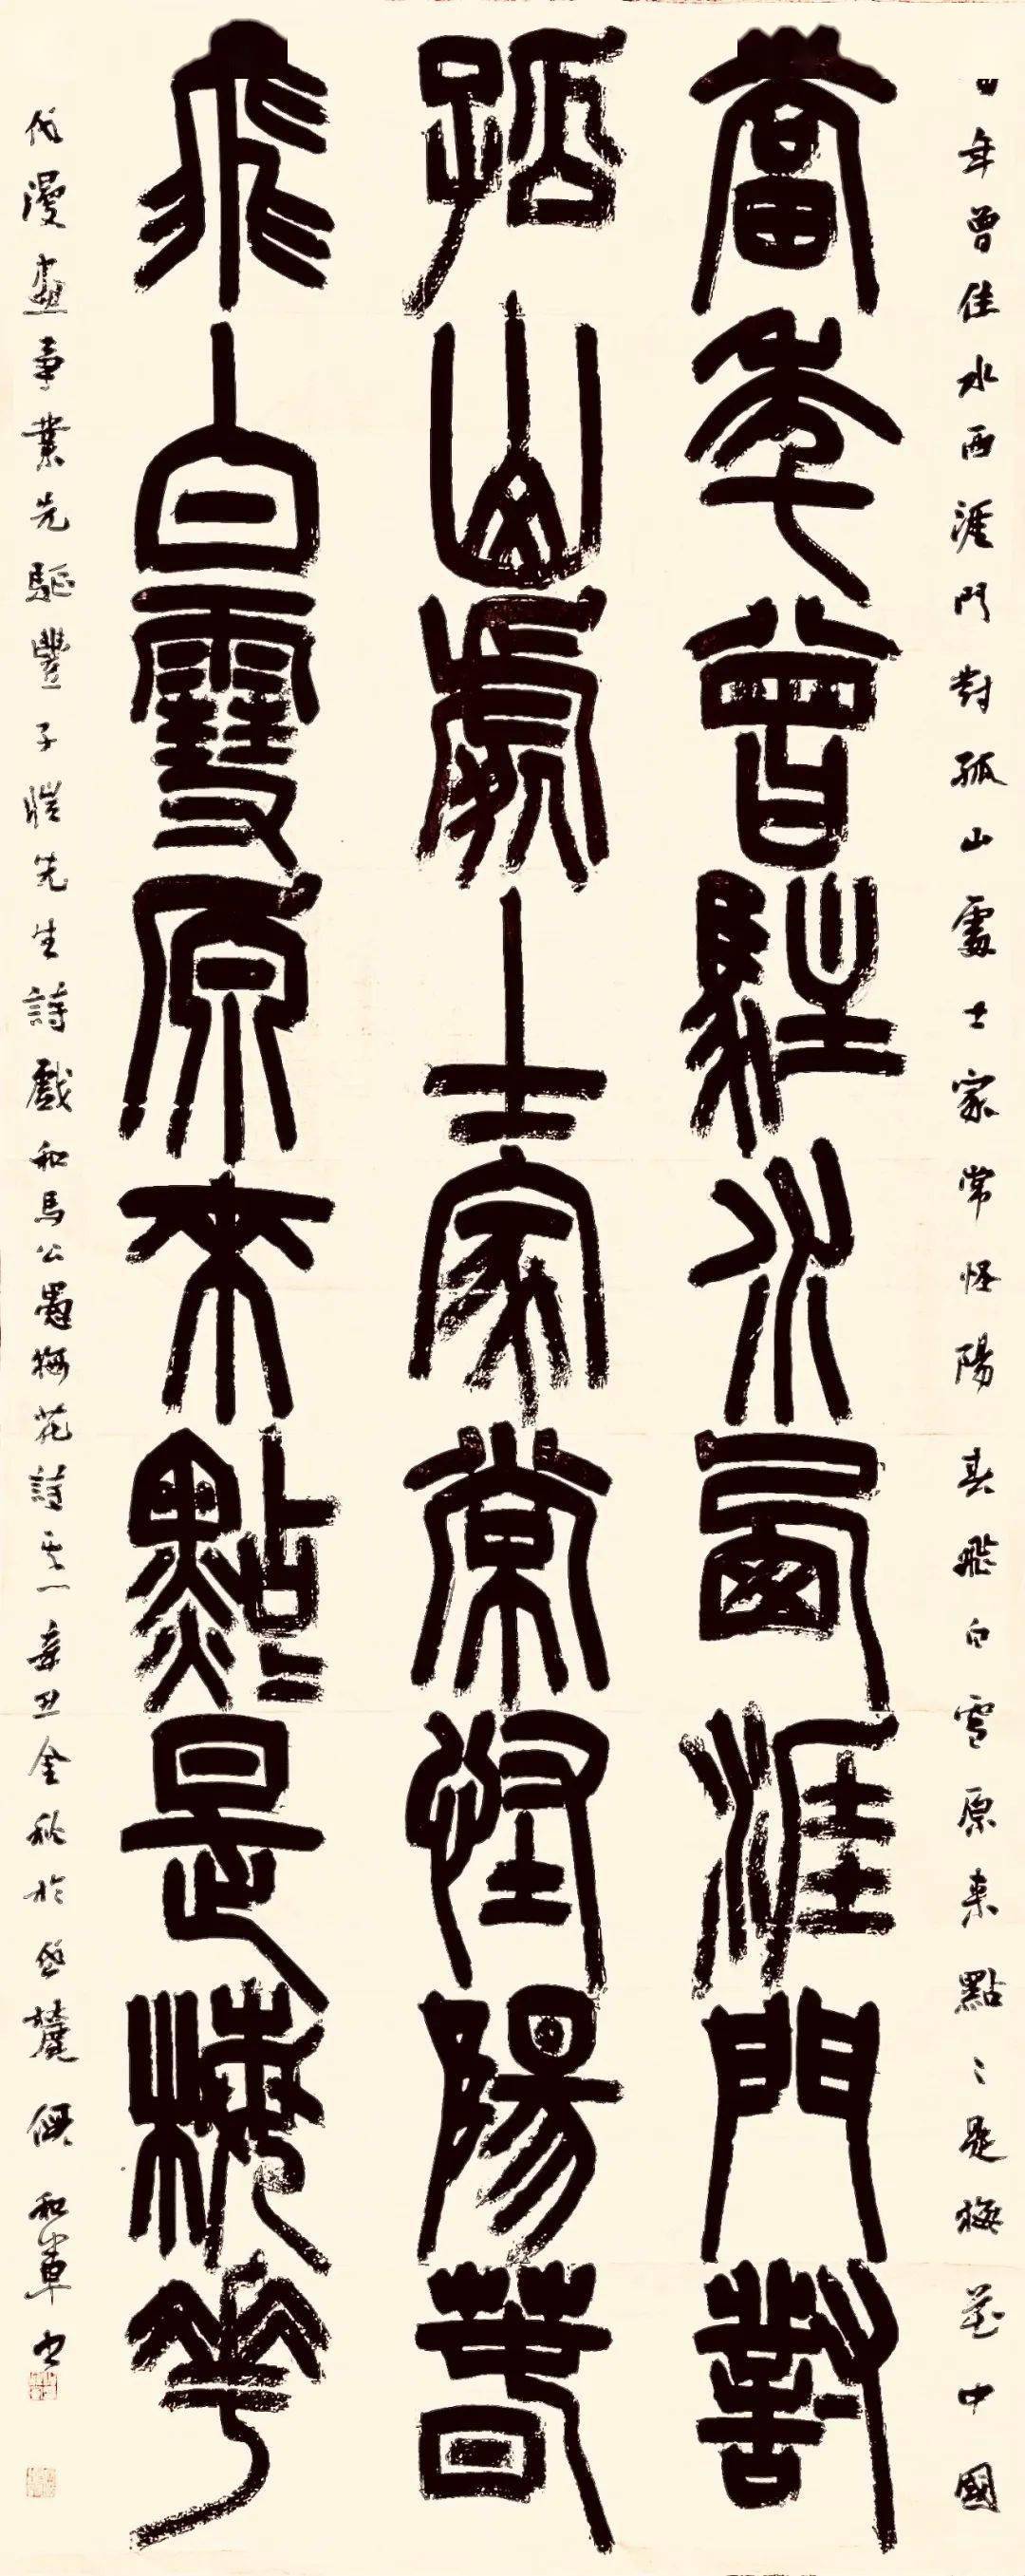 年曾住水西涯門對孤山處士家常怪陽春飛白雪原來點〻是梅花中國
當年曾駐水西涯門對
孤山處士家常怪陽春
飛白雪原來點〻是梅華
代漫畫事業先驅豐子愷先生詩戲和馬公愚梅花詩其一辛丑金秋於岱麓和軍書